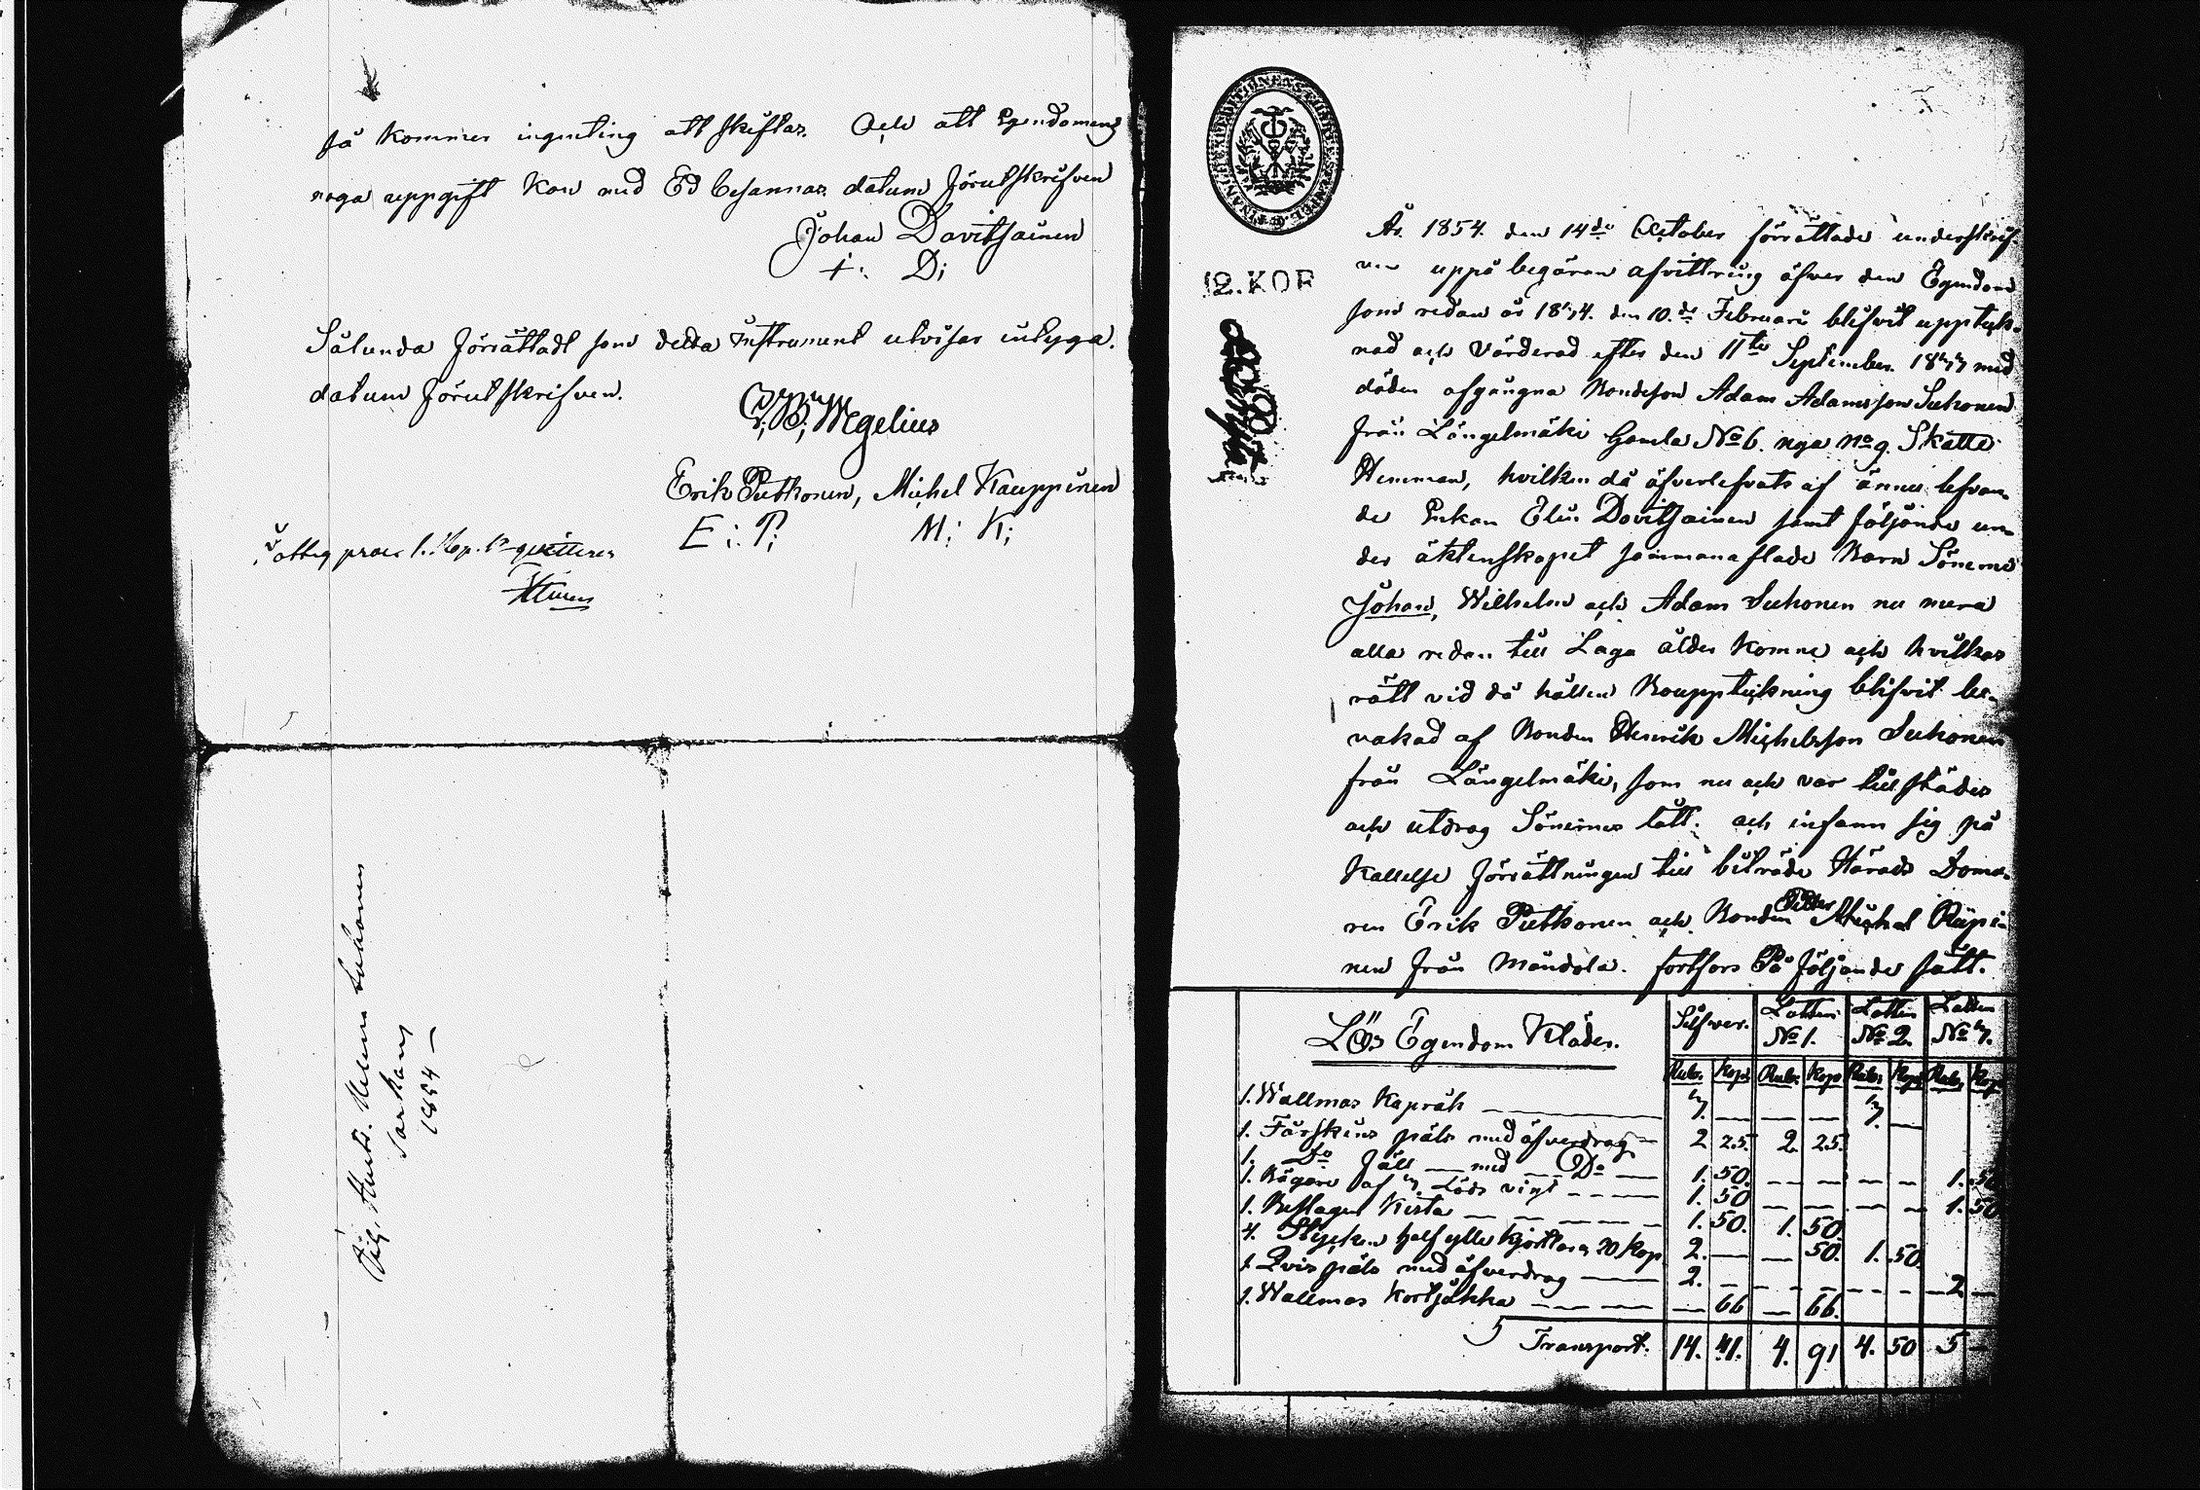 så kommer ingenting att skiftas. Och att Egendomens
noga uppgift kan med Ed besannas datum förutskrifven
Johan Davitsainen
+: D:
Sålunda förrättadt som detta Instrument utvisar intyga.
datum förutskrifven.
Megelius
Erik Putkonen, Michel Kauppinen
E: P: M: K:
1. Kop. qvitteras
Suhonen
1854
FINANCE EXPEDITIONENS STUNDES STEMPEL
12. KOP
År 1854. den 14de October förrättade underskrif-
ven uppå begäran afvittring öfver den Egendom
som redan år 1844. den 10de Februarii blifvit uppteck-
nad och Värderad efter den 11te September 1843 med
döden afgångna Bondeson Adam Adamsson Suhonen
från Längelmäki Gamla No 6. nya No 9. Skatte
Hemman, hvilken då öfverlefvats af ännu lefvan-
de Enkan Elin Davitsainen samt följande un-
der äktenskapet sammanaflade Barn Sönerne
Johan, Wilhelm och Adam Suhonen nu mera
alla redan till Laga ålder komne och hvilkas
rätt vid då hållen Bouppteckning blifvit be-
vakad af Bonden Henrik Michelsson Suhonen
från Längelmäki, som nu och var tillstädes
och utdrog Sönernes lott. och infann sig på
kallelse förrättningen till biträde Härads Doma-
ren Erik Putkonen och Bonden Petter Michel Räpi-
nen från Mändölä. fortfors På följande sätt.
Lös Egendom Kläder. Silfver. Lotten No 1. Lotten No 2. Lotten No 3.
Rub. Kop. Rub. Kop. Rub. Kop. Rub. Kop.
1. Wallmas Kapråk — 3. — — — 3. —
1. Fårskins päls med öfverdrag — 2 25. 2. 25.
1. Do fäll — med — Do — 1. 50. — — — — 1. 50
1. Bägare af 3 Löds vigt — 1. 50 — — — — 1. 50
1. Beslagen Kista — 1. 50. 1. 50.
4. Stycken half ylle kjortlar 2. — — 50. 1. 50.
1. päls med öfverdrag — 2. — — — — — 2 —
1. Wallmas Kortjakka — — 66 — 66.
Transport. 14. 41. 4. 91 4. 50 5 —